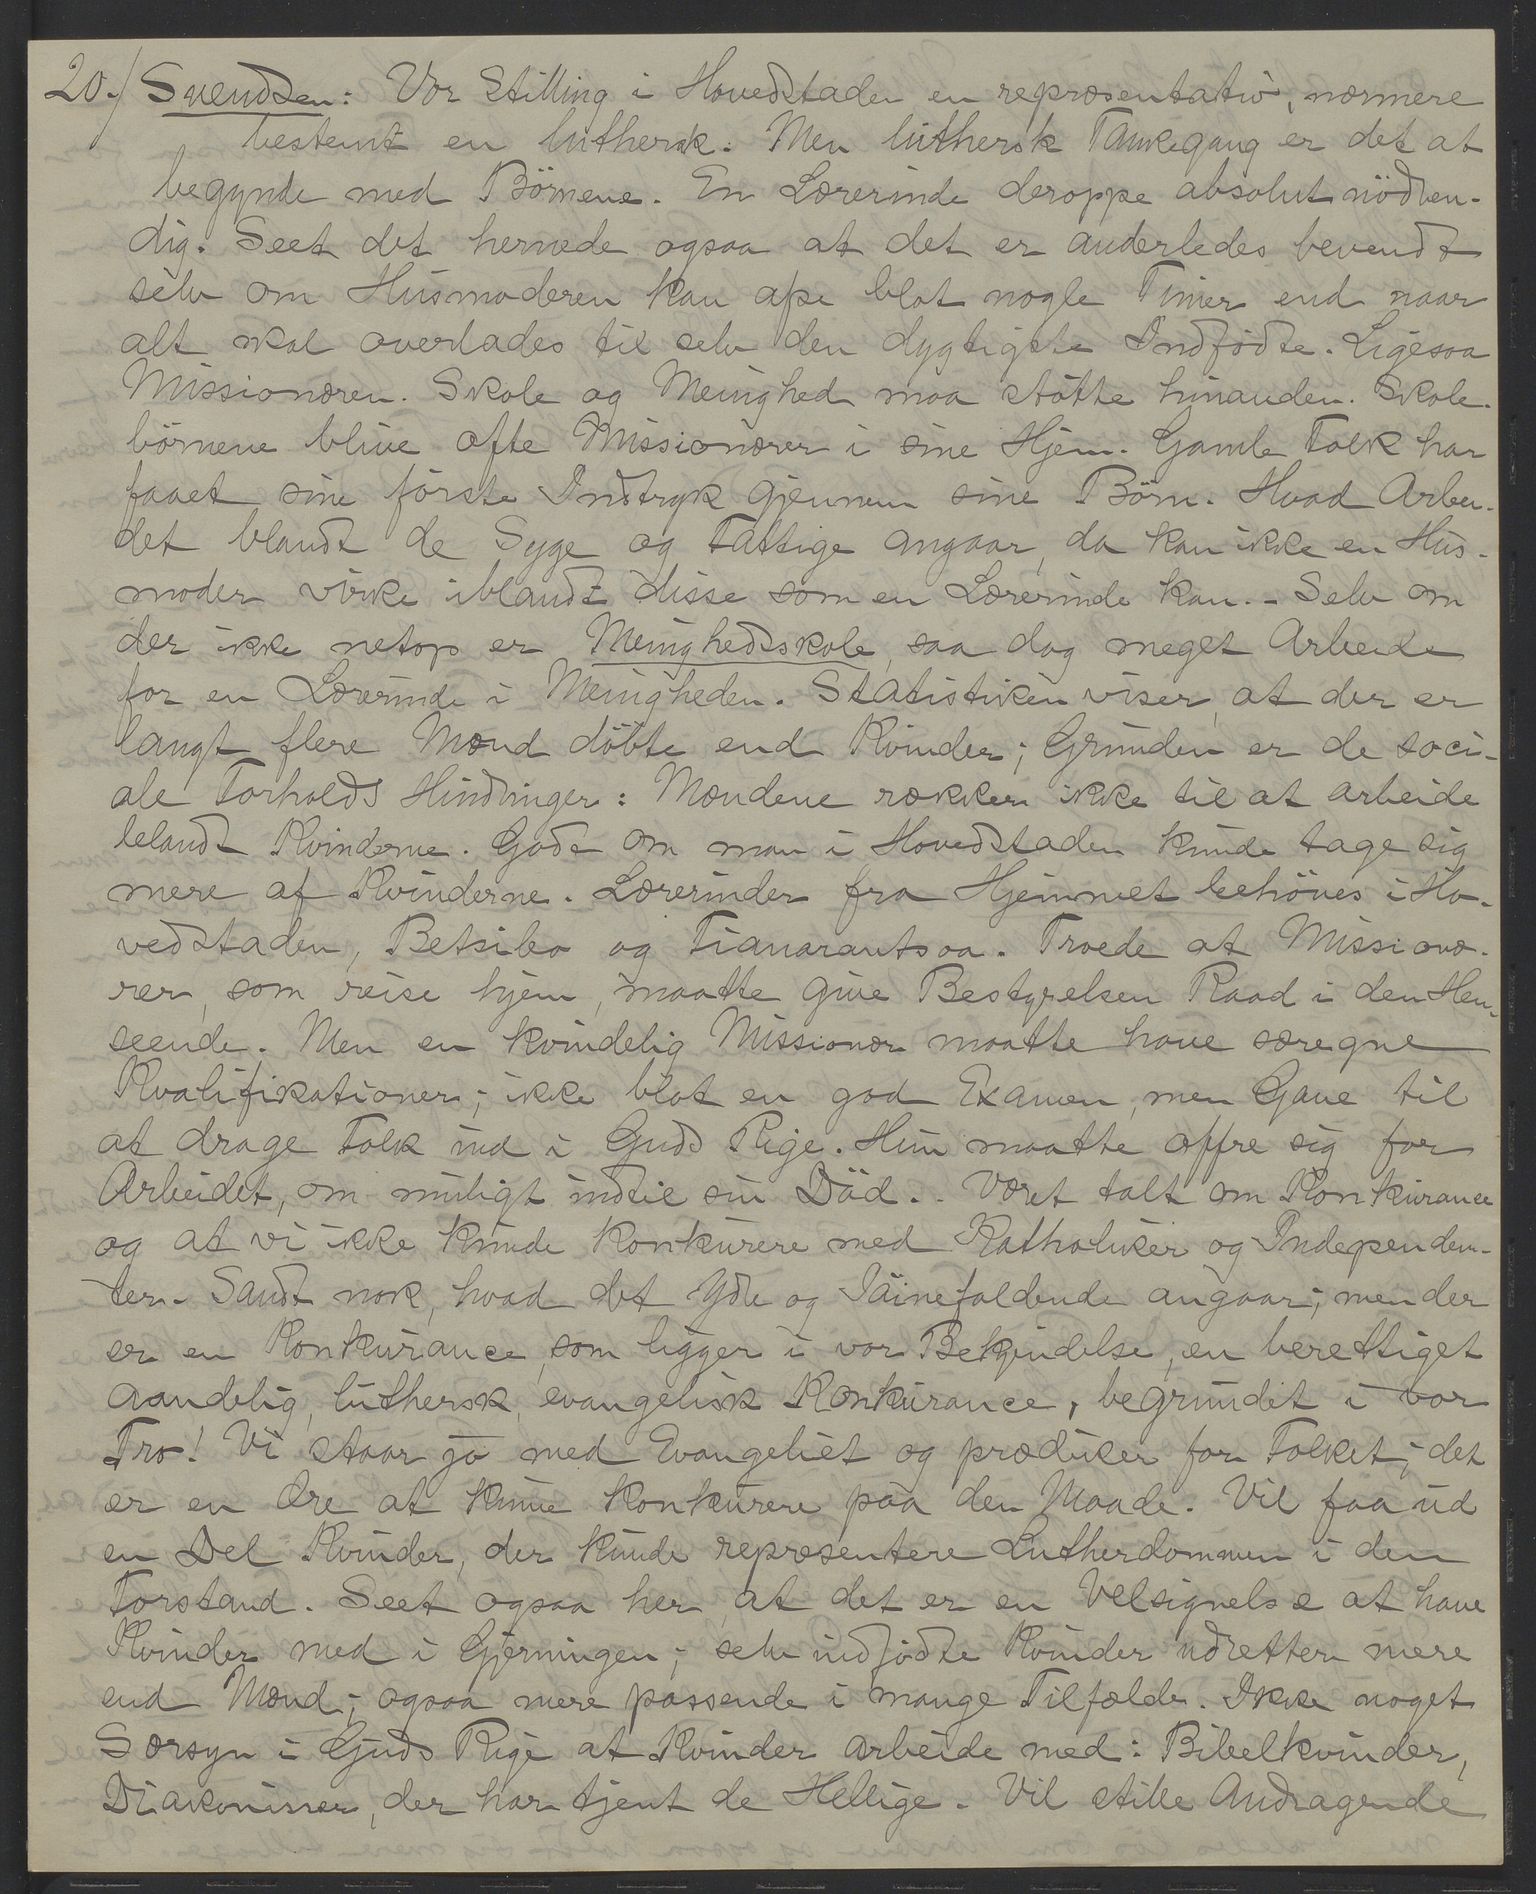 20./ Svendsen: Vor Stilling i Hovedstaden en repræsentativ, nærmere
bestemt en luthersk. Men luthersk Tankegang er det at
begynde med Börnene. En Lærerinde deroppe absolut nödven-
dig. Seet det hernede ogsaa at det er anderledes bevendt
selv om Husmoderen kan afse blot nogle Timer end naar
alt skal overlades til selv den dygtigste Indfödte. Ligesaa
Missionæren. Skole og Menighed maa stötte hinanden. Skole-
börnene blive ofte Missionærer i sine Hjem. Gamle Folk har
faaet sine förste Indtryk gjennem sine Börn. Hvad Arbei-
det blandt de Syge og Fattige angaar, da kan ikke en Hus-
moder virke iblandt disse som en Lærerinde kan. - Selv om
der ikke netop er Menighedsskole, saa dog meget Arbeide
for en Lærerinde i Menigheden. Statistiken viser, at der er
langt flere Mænd döbte end Kvinder; Grunden er de soci-
ale Forholds Hindringer: Mændene rækker ikke til at arbeide
blandt Kvinderne. Godt om man i Hovedstaden kunde tage sig
mere af Kvinderne. Lærerinder fra Hjemmet behöves i Ho-
vedstaden, Betsileo og Fianarantsoa. Troede at Missionæ-
rer, som reise hjem, maatte give Bestyrelsen Raad i den Hen-
seende. Men en kvindelig Missionær maatte have særegne
Kvalifikationer; ikke blot en god Examen, men Gave til
at drage Folk ind i Guds Rige. Hun maatte offre sig for
Arbeidet, om muligt indtil sin Död. - Været talt om Konkurance
og at vi ikke kunde konkurere med Katholiker og Independen-
ter. Sandt nok, hvad det Ydre og Iöinefaldende angaar; men der
er en Konkurance, som ligger i vor Bekjendelse, en berettiget
aandelig, luthersk, evangelisk Konkurance, begrundet i vor
Tro! Vi staar jo med Evangeliet og prædiker for Folket; det
er en Ære at kunne konkurere paa den Maade. Vil faa ud
en Del Kvinder, der kunde repræsentere Lutherdommen i den
Forstand. Seet ogsaa her, at det er en Velsignelse at have
Kvinder med i Gjerningen; selv indfödte Kvinder udretter mere
end Mænd; ogsaa mere passende i mange Tilfælde. Ikke noget
Særsyn i Guds Rige at Kvinder arbeide med: Bibelkvinder,
Diakonisser, der har tjent de Hellige. Vil stille Andragende